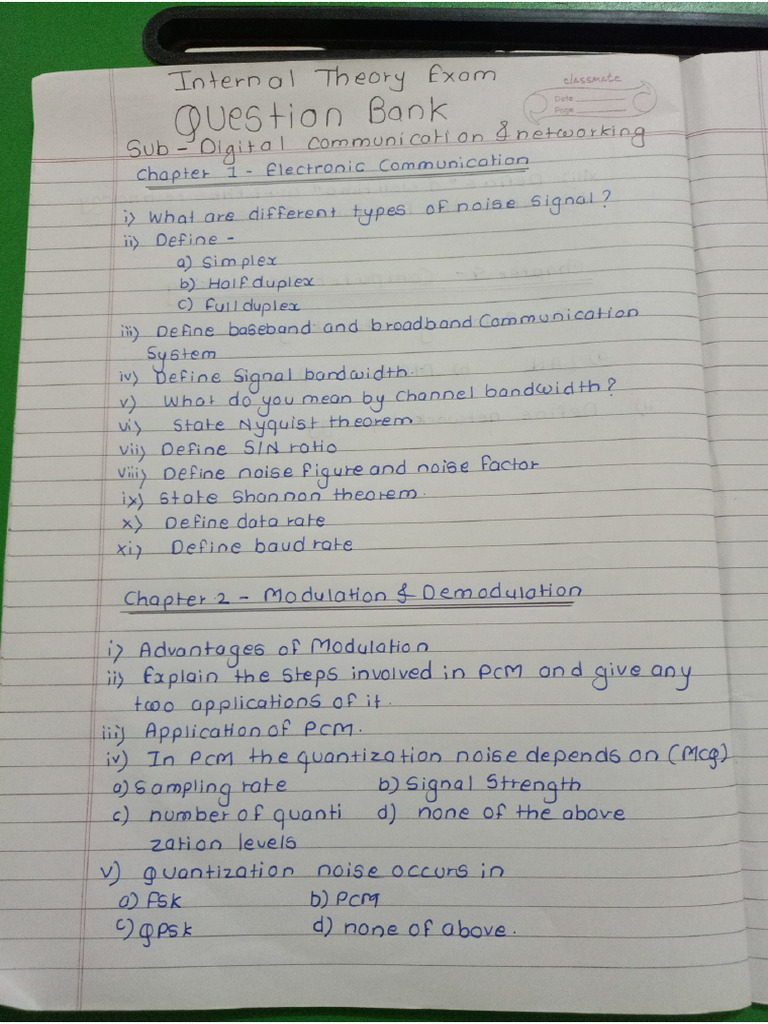 Internal Theory Exam
classmate
Date
Page
Question Bank
Sub - Digital Communication & networking
Chapter 1 - Electronic Communication
i) What are different types of noise signal?
ii) Define -
a) Simplex
b) Half duplex
c) Full duplex
iii) Define baseband and broadband Communication
System
iv) Define Signal bandwidth.
v) What do you mean by Channel bandwidth?
vi) State Nyquist theorem
vii) Define S/N ratio
viii) Define noise figure and noise factor
ix) State Shannon theorem.
x) Define data rate
xi) Define baud rate
Chapter 2 - Modulation & Demodulation
i) Advantages of Modulation
ii) Explain the steps involved in PCM and give any
two applications of it.
iii) Application of PCM.
iv) In PCM the quantization noise depends on (Mcq)
a) Sampling rate b) Signal Strength
c) number of quanti d) none of the above
zation levels
v) Quantization noise occurs in
a) FSK b) PCM
c) QPSK d) none of above.